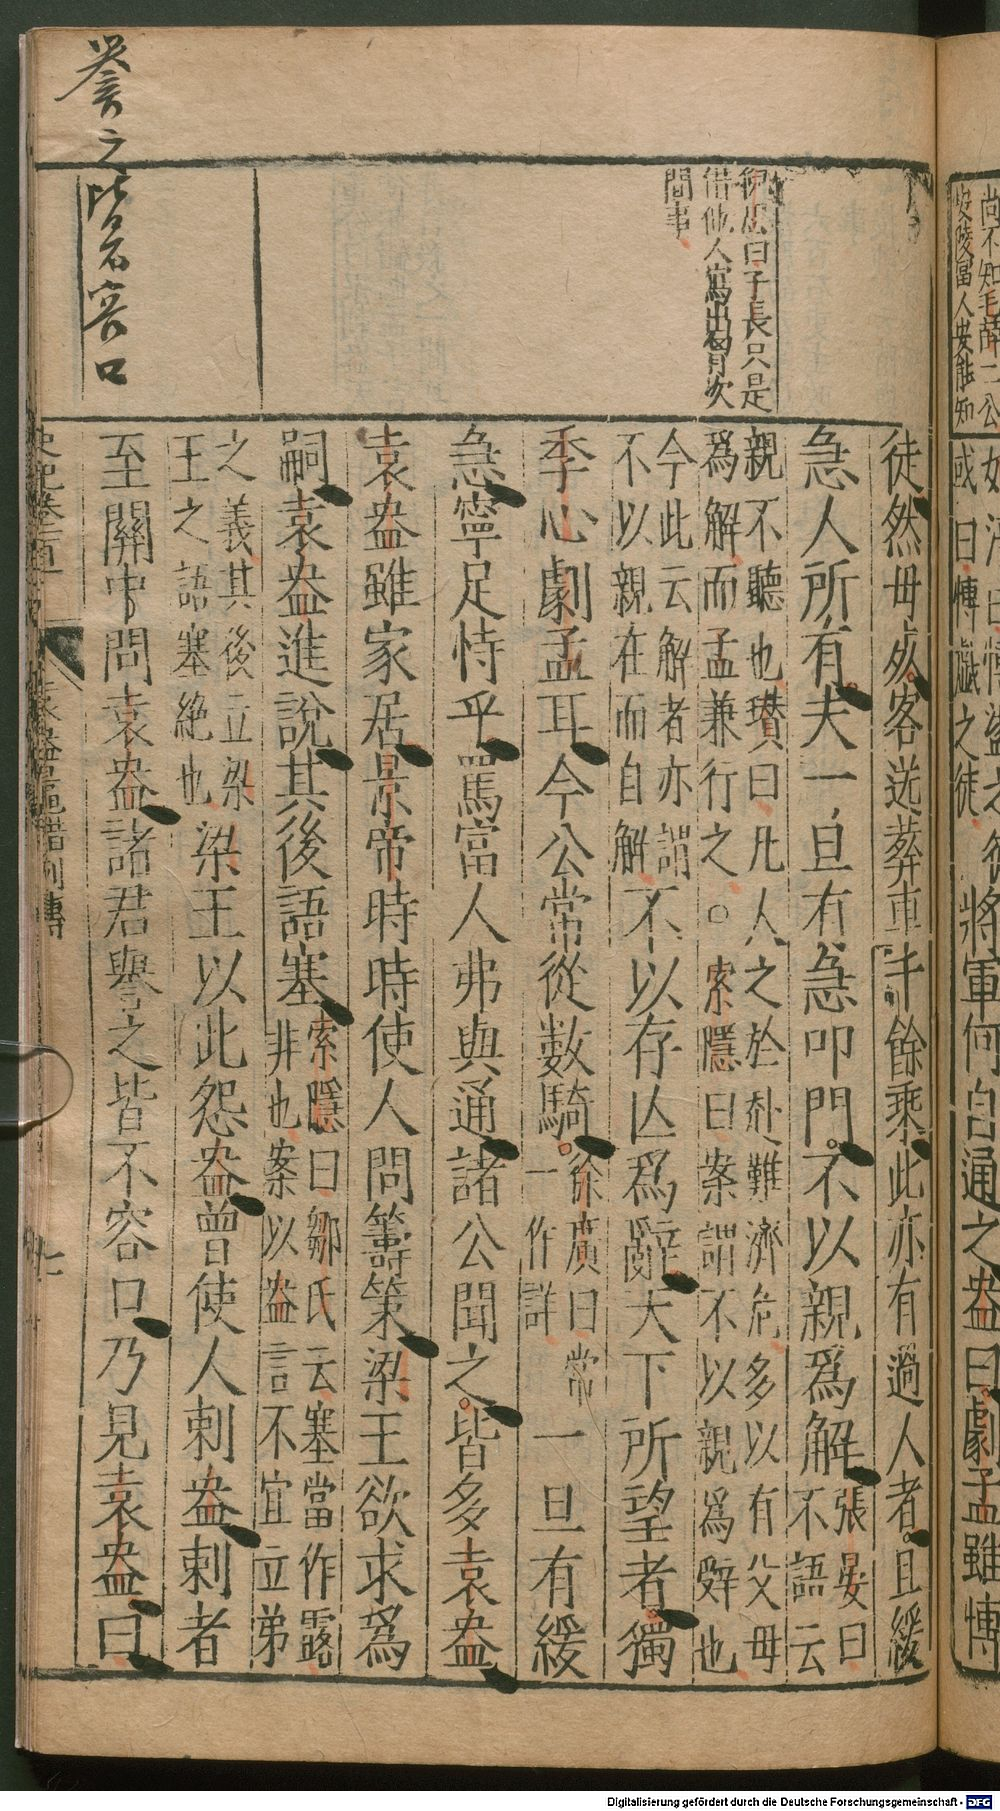 尚不知毛薛二公
安陵富人安能知
或曰博戲之徒
將軍何自通之盎曰劇孟雖博
徒然母死客送葬車千餘乘此亦有過人者且緩
急人所有夫一旦有急叩門不以親爲解張晏曰不語云
親不聽也瓚曰凡人之於赴難濟危多以有父母
爲解而孟兼行之○索隱曰案謂不以親爲辤也
今此云解者亦謂
不以親在而自解不以存亡爲辭天下所望者獨
季心劇孟耳今公常從數騎徐廣曰常一作詳一旦有緩
急寧足恃乎罵富人弗與通諸公聞之皆多袁盎
袁盎雖家居景帝時時使人問籌策梁王欲求爲
嗣袁盎進說其後語塞索隱曰鄒氏云塞當作露非也案以盎言不宜立弟
之義其後立梁
王之語塞絕也梁王以此怨盎曾使人刺盎刺者
至關中問袁盎諸君譽之皆不容口乃見袁盎曰
曰子長只是
借他人寫出胷次
間事
譽之皆不容口
袁盎鼂錯列傳
七
Digitalisierung gefördert durch die Deutsche Forschungsgemeinschaft - DFG